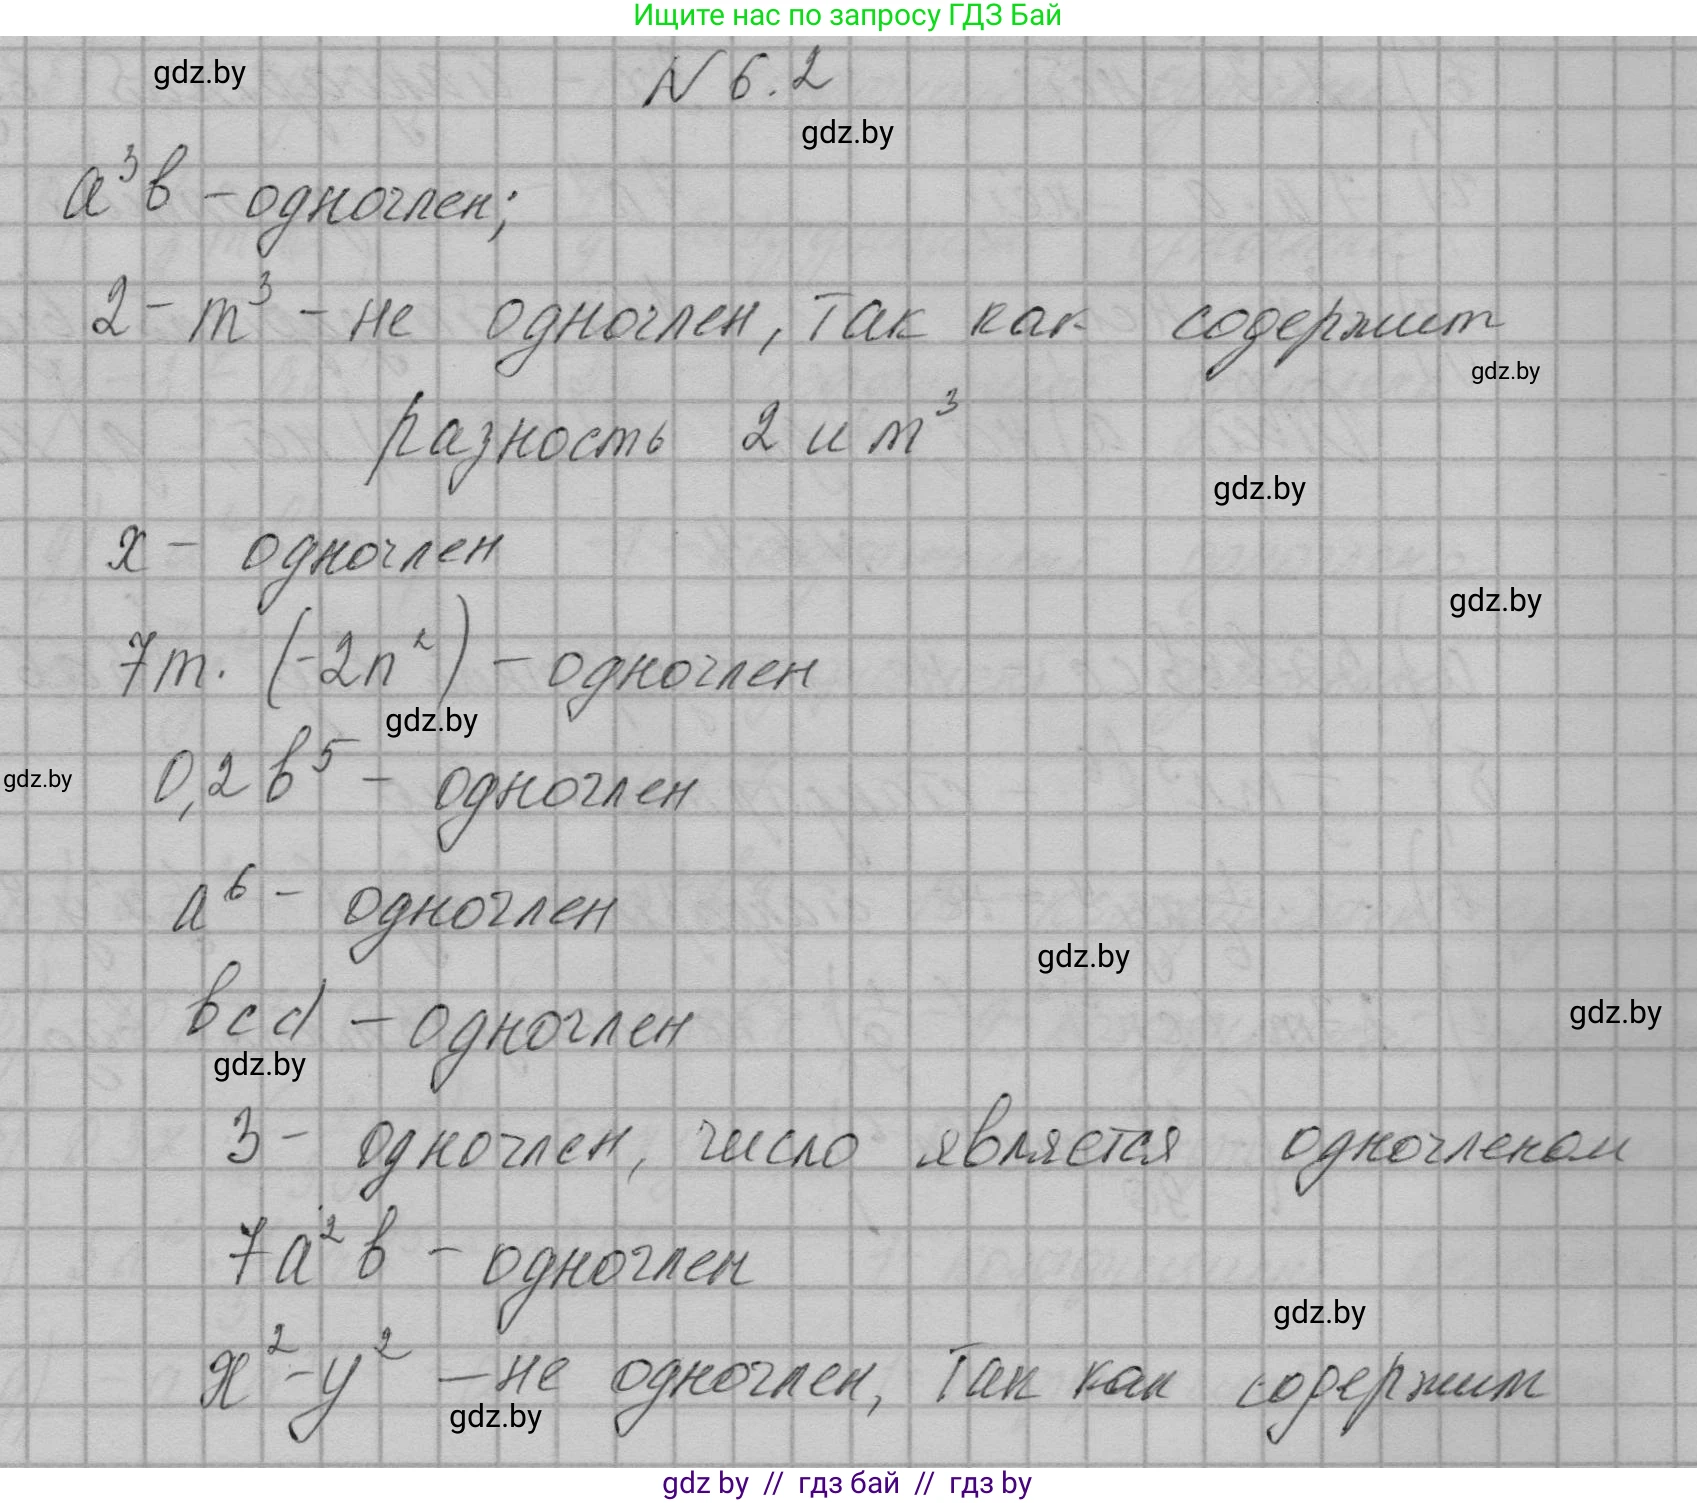 Ищите нас по запросу ГДЗ Бай
gdz.by
N 6.2
gdz.by
a³b - одночлен;
2 - m³ - не одночлен, так как содержит
gdz.by
разность 2 и m³
gdz.by
x - одночлен
gdz.by
7m · (-2n²) - одночлен
gdz.by
0,2b⁵ - одночлен
gdz.by
a⁶ - одночлен
gdz.by
bcd - одночлен
gdz.by
gdz.by
3 - одночлен, число является одночленом
7a²b - одночлен
gdz.by
x² - y² - не одночлен, так как содержит
gdz.by
gdz by // гдз бай // гдз by